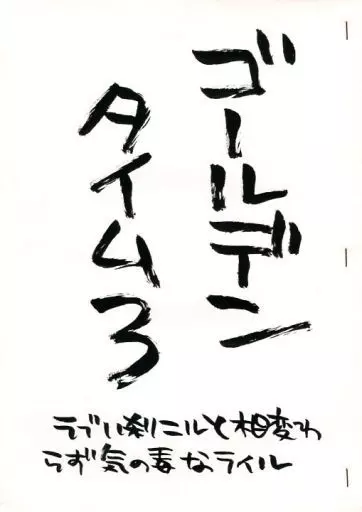 ゴールデン
タイム3
ラブい刹ニルと相変わ
らず気の毒なライル